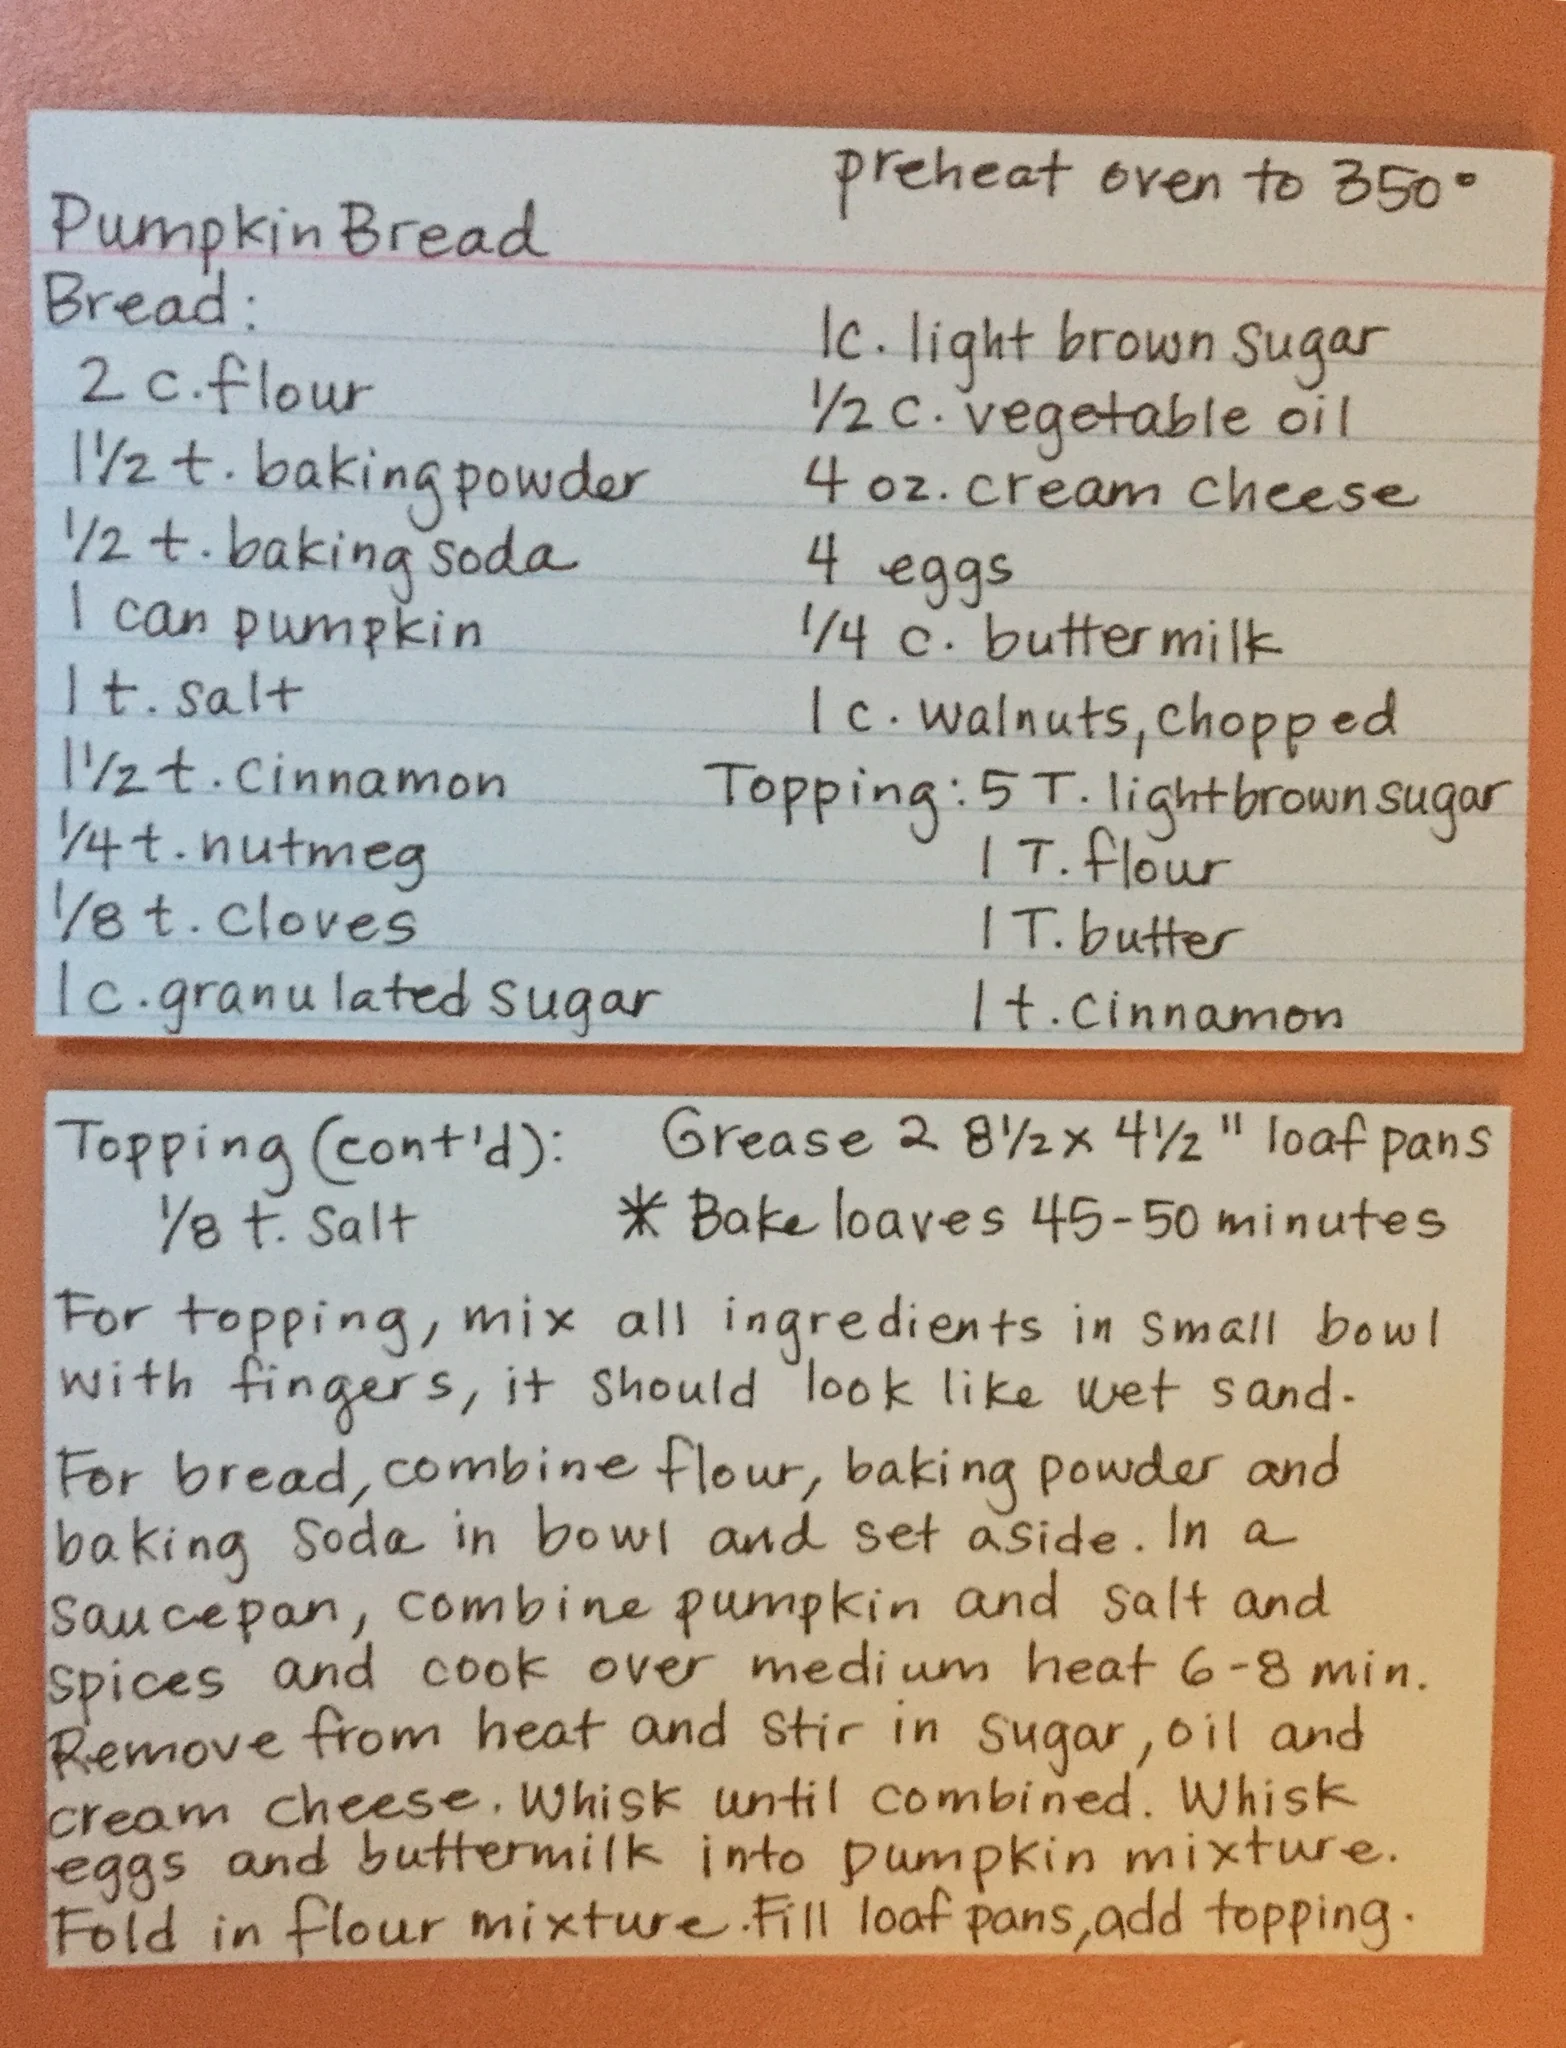 preheat oven to 350°
Pumpkin Bread
Bread:
2 c. flour
1 1/2 t. baking powder
1/2 t. baking soda
1 can pumpkin
1 t. salt
1 1/2 t. cinnamon
1/4 t. nutmeg
1/8 t. cloves
1 c. granulated sugar
1c. light brown sugar
1/2 c. vegetable oil
4 oz. cream cheese
4 eggs
1/4 c. buttermilk
1 c. walnuts, chopped
Topping: 5 T. light brown sugar
1 T. flour
1 T. butter
1 t. cinnamon
Topping (cont'd):
1/8 t. salt
Grease 2 8 1/2 x 4 1/2" loaf pans
* Bake loaves 45-50 minutes
For topping, mix all ingredients in small bowl
with fingers, it should look like wet sand.
For bread, combine flour, baking powder and
baking soda in bowl and set aside. In a
saucepan, combine pumpkin and salt and
spices and cook over medium heat 6-8 min.
Remove from heat and stir in sugar, oil and
cream cheese. Whisk until combined. Whisk
eggs and buttermilk into pumpkin mixture.
Fold in flour mixture. Fill loaf pans, add topping.